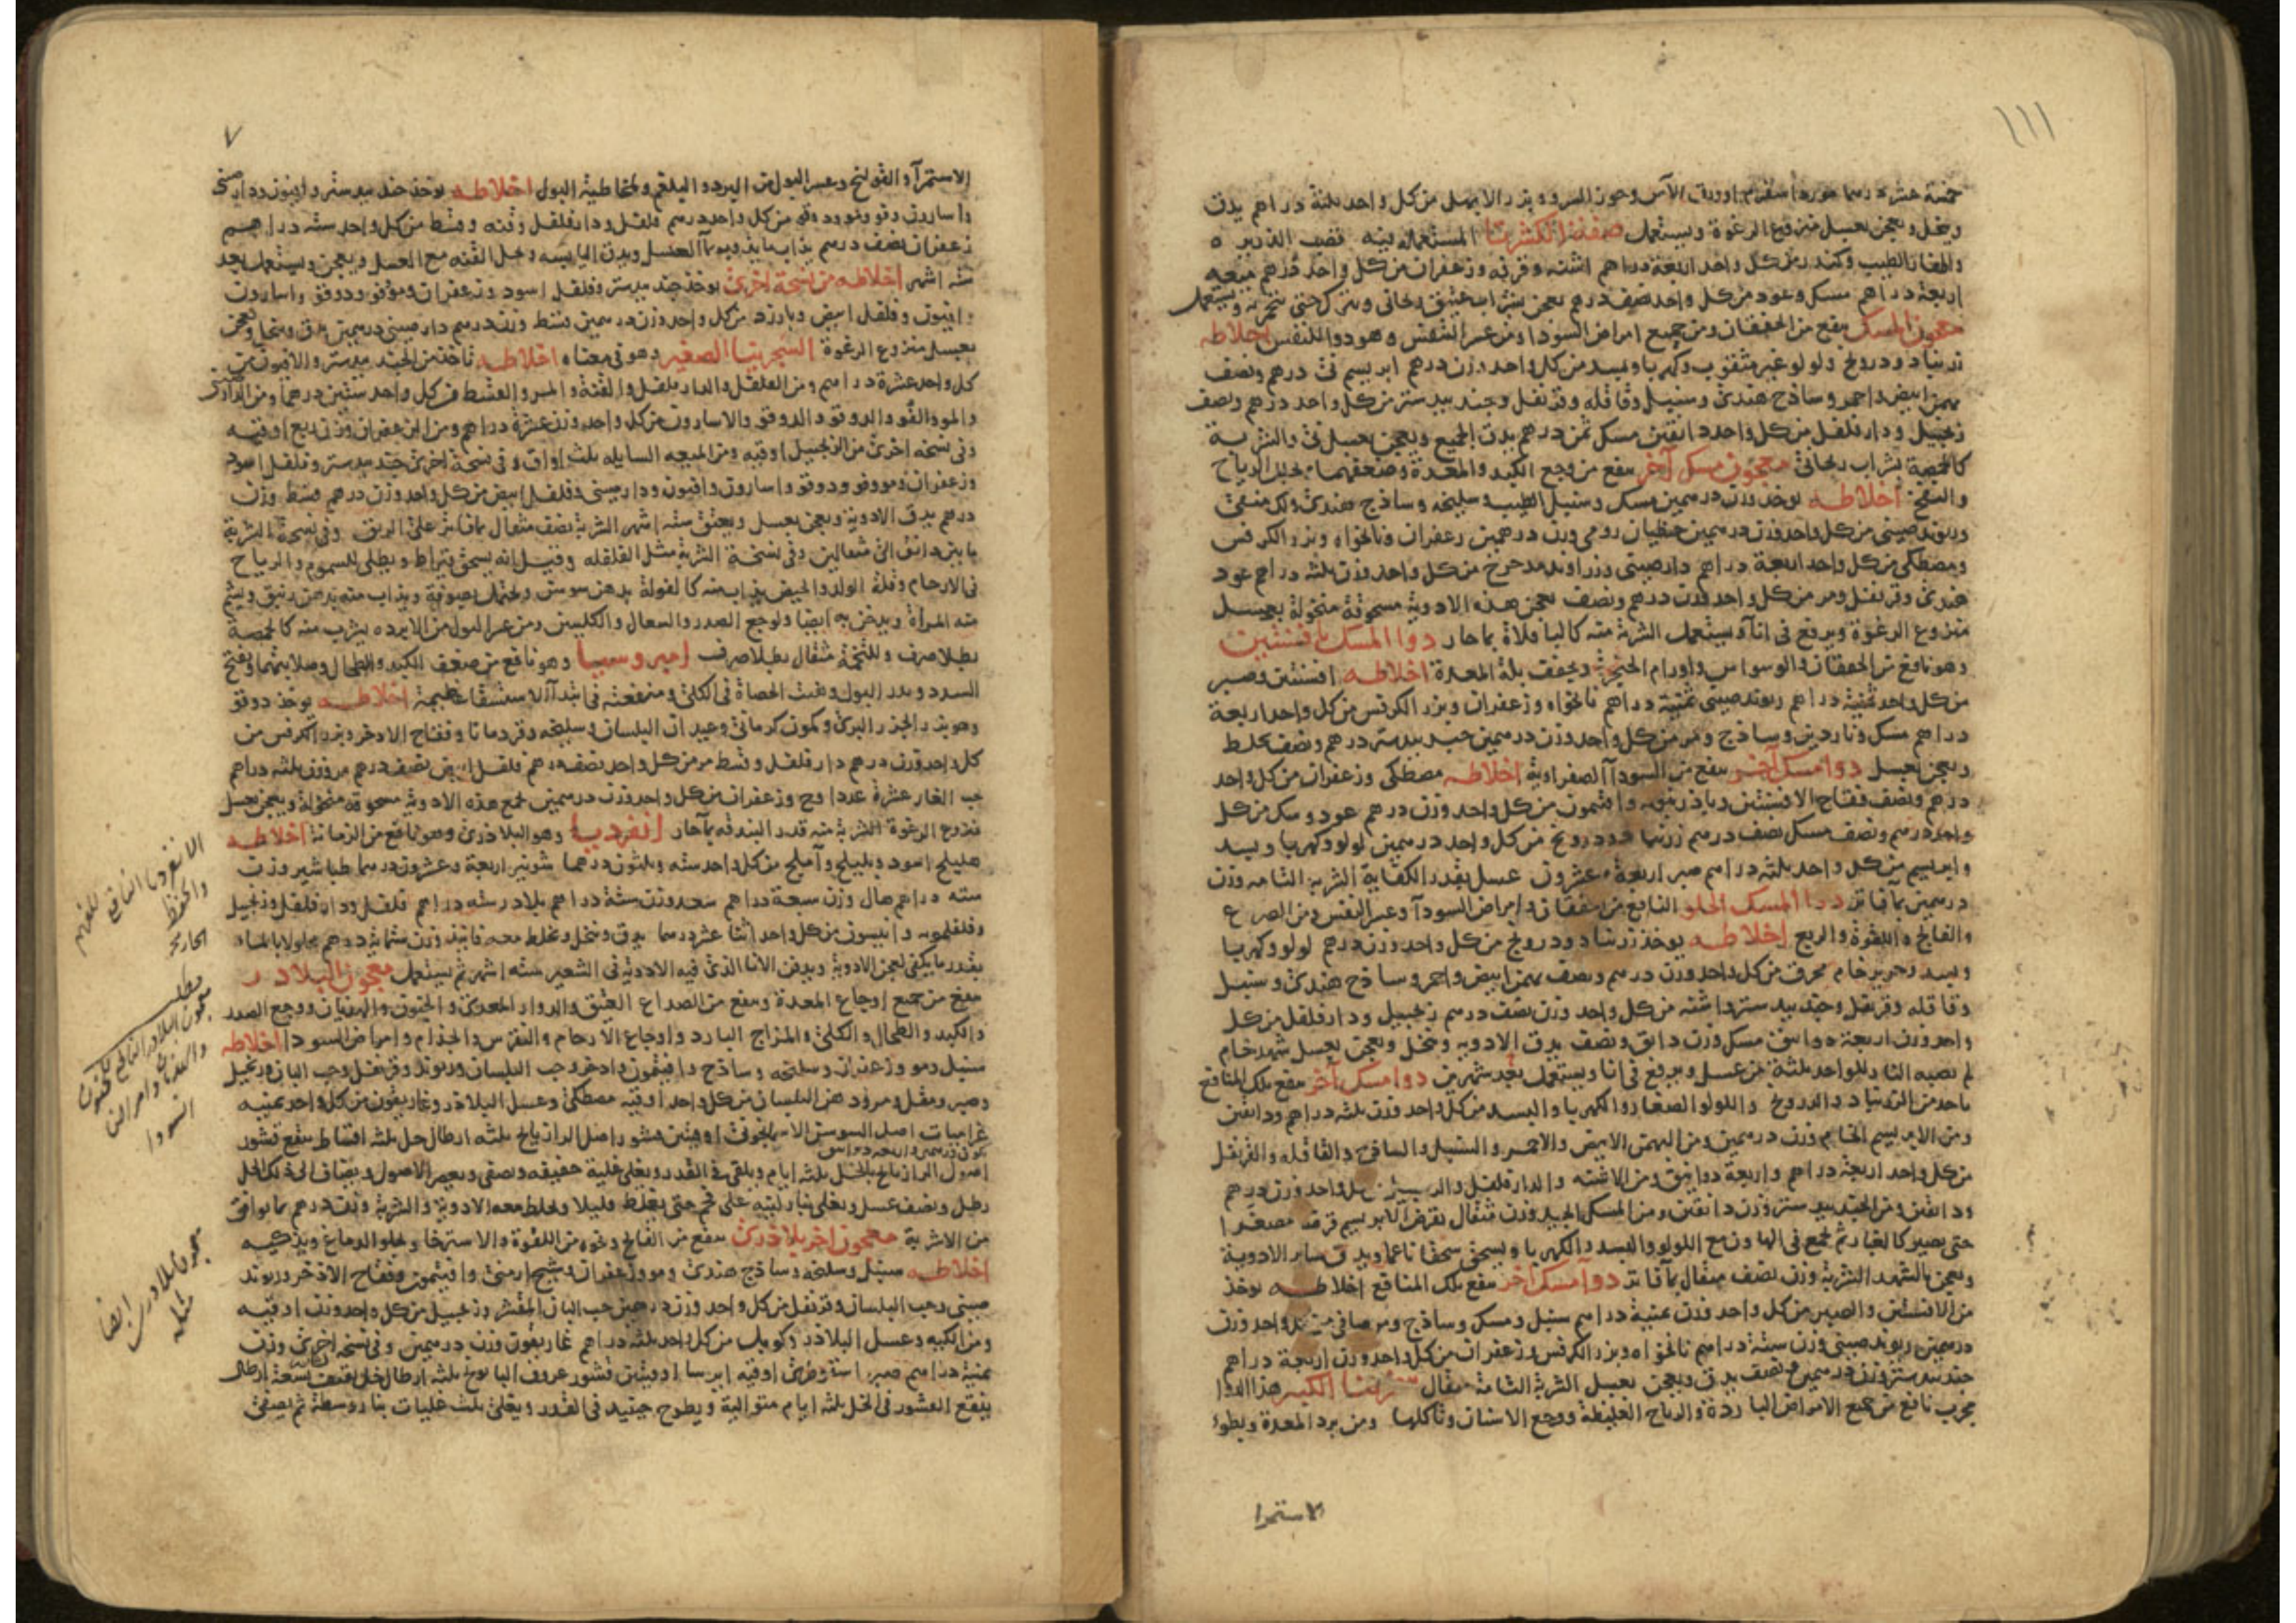 ١١١
خمسة عشر درهما مورد اسفرم او ورق الآس وجوز السرو وبزر الابهل من كل واحد ثلثة دراهم يدق
وينخل ويعجن بعسل منزوع الرغوة ويستعمل صفة الكشرينا المستعملة فيه قصب الذريرة
واظفار الطيب وكندر من كل واحد اربعة دراهم اشنه وقرفه وزعفران من كل واحد درهم ميعه
اربعة دراهم مسك وعود من كل واحد نصف درهم يعجن بشراب عتيق ريحاني ويترك حتى يتخمر به ويستعمل
معجون المسك ينفع من الخفقان ومن جميع امراض السودا ومن عسر النفس وهو دوا للنفس اخلاطه
زرنباد ودرونج ولولو غير مثقوب وكهربا وبسد من كل واحد وزن درهم ابريسم ني درهم ونصف
بهمن ابيض واحمر وساذج هندي وسنبل وقاقله وقرنفل وجندبيدستر من كل واحد درهم ونصف
زنجبيل ودارفلفل من كل واحد دانقين مسك ثمن درهم يدق الجميع ويعجن بعسل ني والشربة
كالحمصة بشراب ريحاني معجون مسك آخر ينفع من وجع الكبد والمعدة وضعفهما يحلل الرياح
والنفخ اخلاطه يوخذ وزن درهمين مسك وسنبل الطيب وسليخه وساذج هندي ولك منقى
وريوند صيني من كل واحد وزن درهمين جنطيان رومي وزن درهمين زعفران ونانخواه وبزر الكرفس
ومصطكى من كل واحد اربعة دراهم دارصيني وزراوند مدحرج من كل واحد وزن ثلثة دراهم عود
هندي وقرنفل ومر من كل واحد وزن درهم ونصف يعجن هذه الادوية مسحوقة منخولة بعسل
منزوع الرغوة ويرفع في انآ ويستعمل الشربة منه كالباقلاة بماء حار دوا المسك بافسنتين
وهو نافع من الخفقان والوسواس واورام الحنجرة ويجفف بلة المعدة اخلاطه افسنتين وصبر
من كل واحد ثمنية دراهم ريوند صيني ثمنية دراهم نانخواه وزعفران وبزر الكرفس من كل واحد اربعة
دراهم مسك وناردين وساذج ومر من كل واحد وزن درهمين جندبيدستر درهم ونصف يخلط
ويعجن بعسل دوا مسك آخر ينفع من السودآ الصفراوية اخلاطه مصطكى وزعفران من كل واحد
درهم ونصف فقاح الافسنتين وباذرنبويه وافتيمون من كل واحد وزن درهم عود وسك من كل
واحد درهم ونصف مسك نصف درهم زرنباد ودرونج من كل واحد درهمين لولو وكهربا وبسد
وابريسم من كل واحد ثلثه دراهم صبر اربعة وعشرون عسل بقدر الكفاية الشربة التامه وزن
درهمين بمآ فاتر دوا المسك الحلو النافع من الخفقان وامراض السودآ وعسر النفس ومن الصرع
والفالج واللقوة والربع اخلاطه يوخذ زرنباد ودرونج من كل واحد وزن درهم لولو وكهربا
وبسد وحرير خام محرق من كل واحد وزن درهم ونصف بهمن ابيض واحمر وساذج هندي وسنبل
وقاقله وقرنفل وجندبيدستر واشنه من كل واحد وزن نصف درهم زنجبيل ودارفلفل من كل
واحد وزن اربعة دوانيق مسك وزن دانق ونصف يدق الادويه وتنخل ويعجن بعسل شهد خام
لم تصبه النار للواحد ثلثة من عسل ويرفع في انا ويستعمل بعد شهرين دوا مسك آخر ينفع تلك المنافع
ياخذ من الزرنباد والدرونج واللولو الصغار والكهربا والبسد من كل واحد وزن ثلثه دراهم ودانقين
ومن الابريسم الخام وزن درهمين ومن البهمن الابيض والاحمر والسنبل والساذج والقاقله والقرنفل
من كل واحد اربعة دراهم واربعة دوانيق ومن الاشنه والدارفلفل والزنجبيل من كل واحد وزن درهم
ودانقين ومن الجندبيدستر وزن دانقين ومن المسك الجيد وزن مثقال يقرض الابريسم قرضا مصغرا
حتى يصير كالغبار ثم يجمع في الهاون مع اللولو والبسد والكهربا ويسحق سحقا ناعما ويدق ساير الادوية
ويعجن بالشهد الشربة وزن نصف مثقال بمآ فاتر دوا مسك آخر ينفع تلك المنافع اخلاطه يوخذ
من الافسنتين والصبر من كل واحد وزن ثمنية دراهم سنبل ومسك وساذج ومر صافي من كل واحد وزن
درهمين ريوند صيني وزن ستة دراهم نانخواه وبزر الكرفس وزعفران من كل واحد وزن اربعة دراهم
جندبيدستر وزن درهمين ونصف يدق ويعجن بعسل الشربة التامة مثقال سجزينا الكبير هذا الدوا
مجرب نافع من جميع الامراض الباردة والرياح الغليظة ووجع الاسنان وتاكلها ومن برد المعدة وبطوء
الاستمرا
٧
الاستمرآ والقولنج وعسر البول من البرد والبلغم ولمخاطية البول اخلاطه يوخذ جندبيدستر وافيون ودارصيني
واسارون وفو ومو ودوقو من كل واحد درهم فلفل ودارفلفل وقنه وقسط من كل واحد ستة دراهم
زعفران نصف درهم يذاب ما يذوب بمآ العسل ويدق اليابسه وتحل القنه مع العسل ويعجن ويستعمل بعد
سته اشهر اخلاطه من نسخة اخرى يوخذ جندبيدستر وفلفل اسود وزعفران ومو وفو ودوقو واسارون
وافيون وفلفل ابيض وبارزد من كل واحد وزن درهمين قسط وزن درهم دارصيني درهمين يدق وينخل ويعجن
بعسل منزوع الرغوة السجزينا الصغير وهو في معناه اخلاطه تاخذ من الجندبيدستر والافيون من
كل واحد عشرة دراهم ومن الفلفل والدارفلفل والقنة والمر والقسط من كل واحد ستين درهما ومن الدارصيني
والمو والفو والدوقو والاسارون من كل واحد وزن عشرة دراهم ومن الزعفران وزن ربع اوقيه
وفي نسخه اخرى من الزنجبيل اوقيه ومن الميعه السايله ثلث اواق وفي نسخة اخرى جندبيدستر وفلفل اسود
وزعفران ومو وفو ودوقو واسارون وافيون ودارصيني وفلفل ابيض من كل واحد وزن درهم قسط وزن
درهم يدق الادوية ويعجن بعسل ويعتق سته اشهر الشربة نصف مثقال بماء فاتر على الريق وفي نسخة الشربة
ما بين دانق الى مثقالين وفي نسخة الشربة مثل الفلفله وقيل انه يسحق بقيراط ويطلى للسموم والرياح
في الارحام وقلة الولد والحيض يذاب منه كالفولة بدهن سوسن وتحتمل بصوفة ويذاب منه بدهن زنبق ويشم
منه المراة ويدخن به ايضا ولوجع الصدر والسعال والكليتين ومن عسر البول من الابردة يشرب منه كالحمصة
بطلا صرف وللتخمة مثقال بطلا صرف اميروسيا وهو نافع من ضعف الكبد والطحال وصلابتهما ويفتح
السدد ويدر البول ويفتت الحصاة في الكلى ومنفعته في ابتدآ الاستسقا عظيمة اخلاطه يوخذ دوقو
وهو بزر الجزر البري وكمون كرماني وعيدان البلسان وسليخه وقردمانا وفقاح الاذخر وبزر الكرفس من
كل واحد وزن درهم دارفلفل وقسط مر من كل واحد نصف درهم فلفل ابيض نصف درهم مر وزن ثلثه دراهم
حب الغار عشرة عددا وج وزعفران من كل واحد وزن درهمين تجمع هذه الادوية مسحوقه منخولة ويعجن بعسل
منزوع الرغوة الشربة منه قدر البندقه بمآ حار انفرديا وهو البلاذري وهو نافع من الزمانة اخلاطه
هليلج اسود وبليلج وآملج من كل واحد سته وثلثون درهما شونيز اربعة وعشرون درهما طباشير وزن
سته دراهم هال وزن سبعة دراهم سعد وزن ستة دراهم بلادر سته دراهم فلفل ودارفلفل وزنجبيل
وفلفلمويه وانيسون من كل واحد اثنا عشر درهما يدق وينخل ويخلط معه فانيذ وزن ستمائة درهم محلولا بالماء
بقدر ما يكفي لعجن الادوية ويدفن الانا الذي فيه الادوية في الشعير سته اشهر ثم يستعمل معجون البلادر
ينفع من جميع اوجاع المعدة وينفع من الصداع العتيق والدوار المعدي والجنون والهذيان ووجع الصدر
والكبد والطحال والكلى والمزاج البارد واوجاع الارحام والنقرس والجذام وامراض السودا اخلاطه
سنبل ومو وزعفران وسليخه وساذج وافتيمون واذخر وحب البلسان وريوند وقرنفل وحب البان وزنجبيل
وصبر ومقل ومر ودهن البلسان من كل واحد اوقيه مصطكى وعسل البلاذر وغاريقون من كل واحد ثمنيه
غراميات اصل السوسن الاسمانجوني اوقيتين قشور اصل الرازيانج ثلثه ارطال خل ثلثه اقساط ينقع قشور
اصول الرازيانج بالخل ثلثه ايام ويلقى في القدر ويغلى غلية خفيفه ويصفى ويعصر الاصول ويضاف الى ذلك الخل
رطل ونصف عسل ويغلى بنار لينه على جمر حتى يغلظ قليلا ويخلط معه الادوية والشربة وزن درهم بما يوافق
من الاشربة معجون اخر بلاذري ينفع من الفالج وغيره من اللقوة والاسترخا ويجلو الدماغ ويذكيه
اخلاطه سنبل وسليخه وساذج هندي ومو وزعفران وشيح ارمني وافتيمون وفقاح الاذخر وريوند
صيني وحب البلسان وقرنفل من كل واحد وزن درهمين حب البان المقشر وزنجبيل من كل واحد وزن اوقيه
ومن الكيه وعسل البلاذر من كل واحد ثلثه دراهم غاريقون وزن درهمين وفي نسخه اخرى وزن
ثمنية دراهم صبر اسقوطري اوقيه ايرسا اوقيتين قشور عروق ثلثه ارطال خل تسعة ارطال
ينقع القشور في الخل ثلثه ايام متوالية ويطرح جنبيد في القدر ويغلى ثلث غليات بنار وسطة ثم يصفى
الانفرديا النافع
والحفظ
مطلب
معجون البلادر النافع
والهذيان وامراض
السودا
معجون بلادري ايضا
مثله